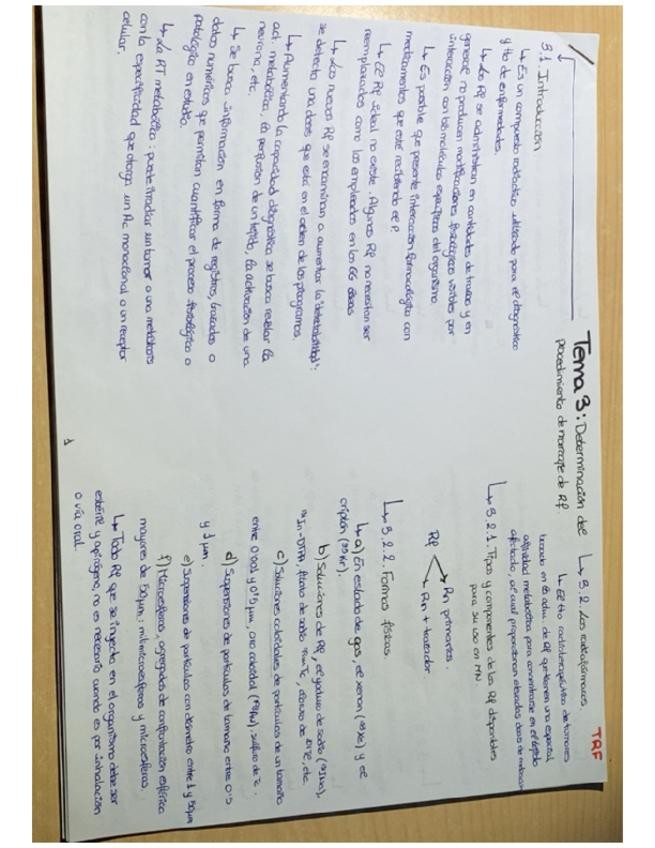 TRF
Tema 3: Determinación del
procedimiento de marcaje de Rf
3.1. Introducción
↳ Es un compuesto radiactivo utilizado para el diagnóstico
y tto de enfermedades.
↳ Los Rf se administran en cantidades de trazas y en
general no producen modificaciones fisiológicas visibles por
interacción con las moléculas específicas del organismo.
↳ Es posible que presente interacción farmacológica con
medicamentos que esté recibiendo el P.
↳ El Rf ideal no existe. Algunos Rf no necesitan ser
reemplazados como los empleados en los GG
↳ Los nuevos Rf se encaminan a aumentar la detectabilidad:
se detecta una dosis que está en el orden de los picogramos.
↳ Aumentando la capacidad diagnóstica se busca revelar la
act. metabólica, la perfusión de un tejido, la activación de una
neurona, etc.
↳ Se busca información en forma de registros, trazados o
datos numéricos que permitan cuantificar el proceso fisiológico o
patológico en estudio.
↳ La RT metabólica: puede irradiar un tumor o una metástasis
con la especificidad que otorga un Ac monoclonal o un receptor
celular.
↳ 3.2. Los radiofármacos.
↳ El tto radioterapéutico de tumores
basado en la adm. de Rf que tienen una especial
afinidad metabólica para concentrarse en el tejido
afectado, al cual proporcionan elevadas dosis de radiación
↳ 3.2.1. Tipos y componentes de los Rf disponibles
para su uso en MN.
Rf
↗ Rn primarios.
↘ Rn + trazador
↳ 3.2.2. Formas físicas.
↳ a) En estado de gas, el xenon (Xe) y el
criptón (Kr).
b) Soluciones de Rf, el yoduro de sodio
In-DTPA, de sodio Tc, cloruro de Tl, etc.
c) Soluciones coloidales de partículas de un tamaño
entre 0'001 y 0'5 µm, oro coloidal (Au), sulfuro de Tc.
d) Suspensiones de partículas de tamaño entre 0'5
y 1 µm.
e) Suspensiones de partículas con diámetro entre 1 y 50µm
f) Microesferas, agregados de configuración esférica
mayores de 50µm: milimicroesferas y microesferas.
↳ Todo Rf que se inyecta en el organismo debe ser
estéril y apirógeno, no es necesario cuando es por inhalación
o vía oral.
1